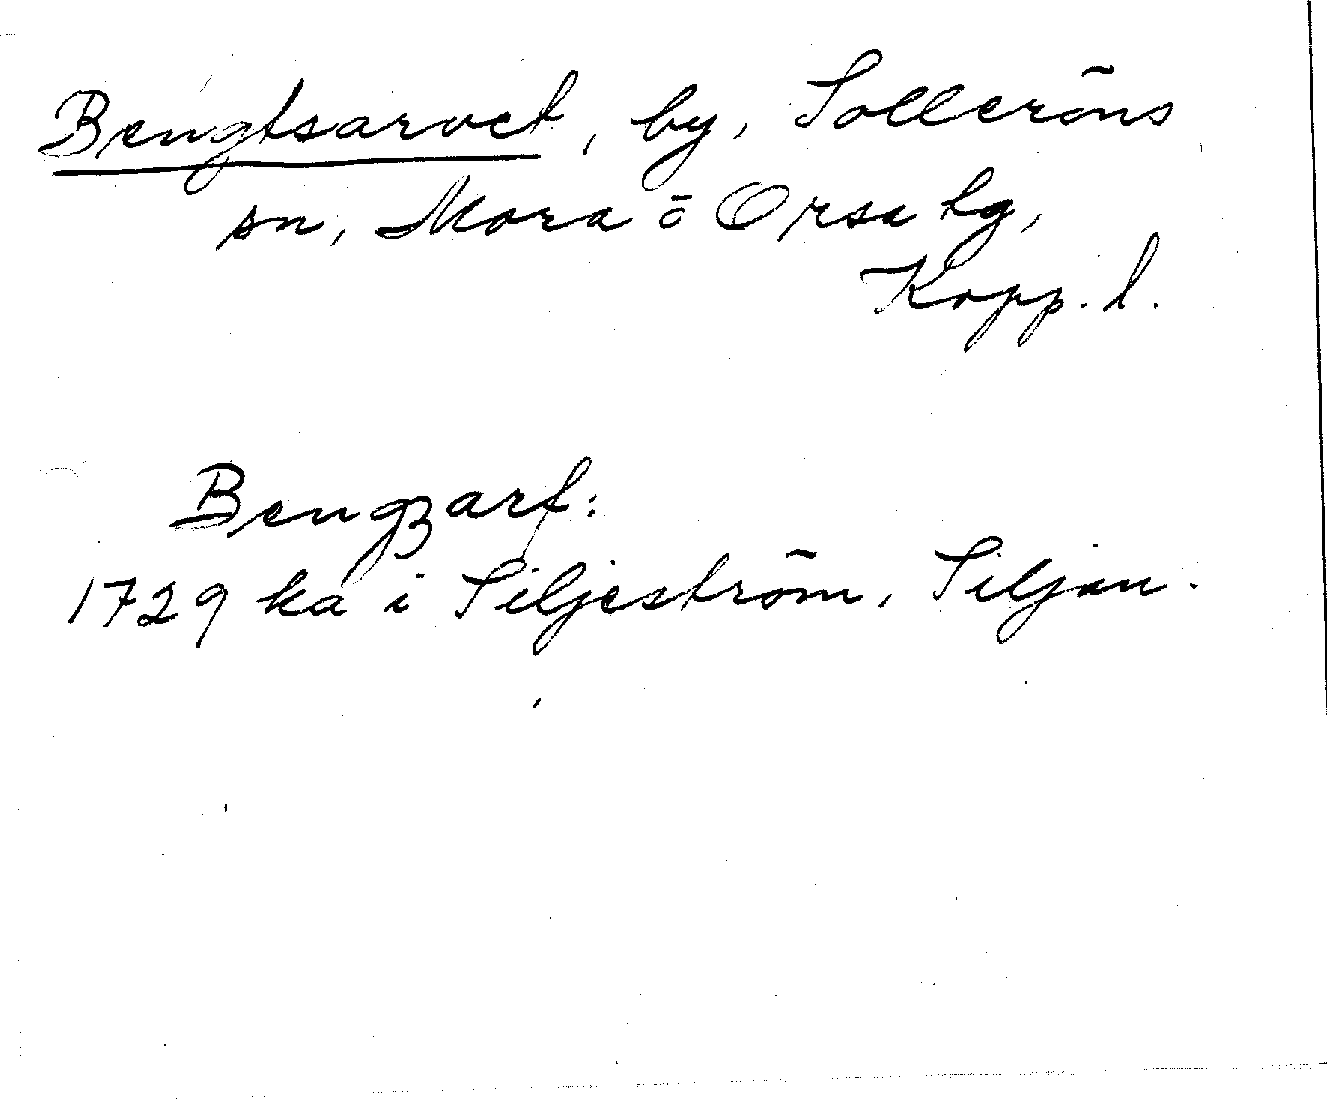 Bengtsarvet, by, Solleröns
sn, Mora o Orsa tg,
Kopp. l.
Bengzarf:
1729 ka i Siljeström, Siljan.